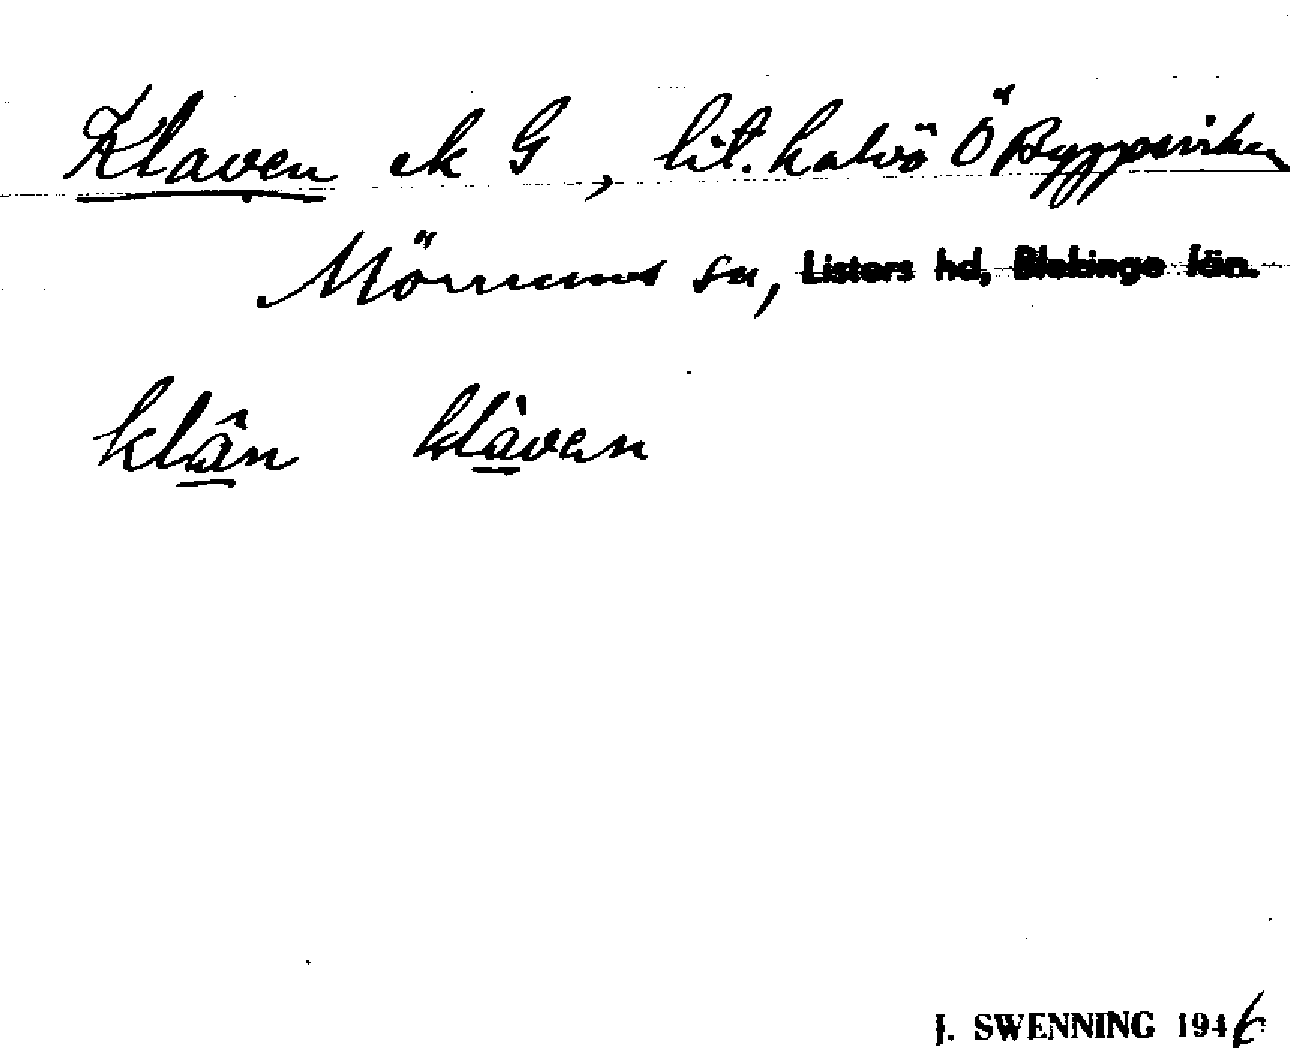 Klaven ek G, lit. halvö Ö Byggeviken
Mörrums sn, Listers hd, Blekinge län.
klân klàvan
J. SWENNING 1946